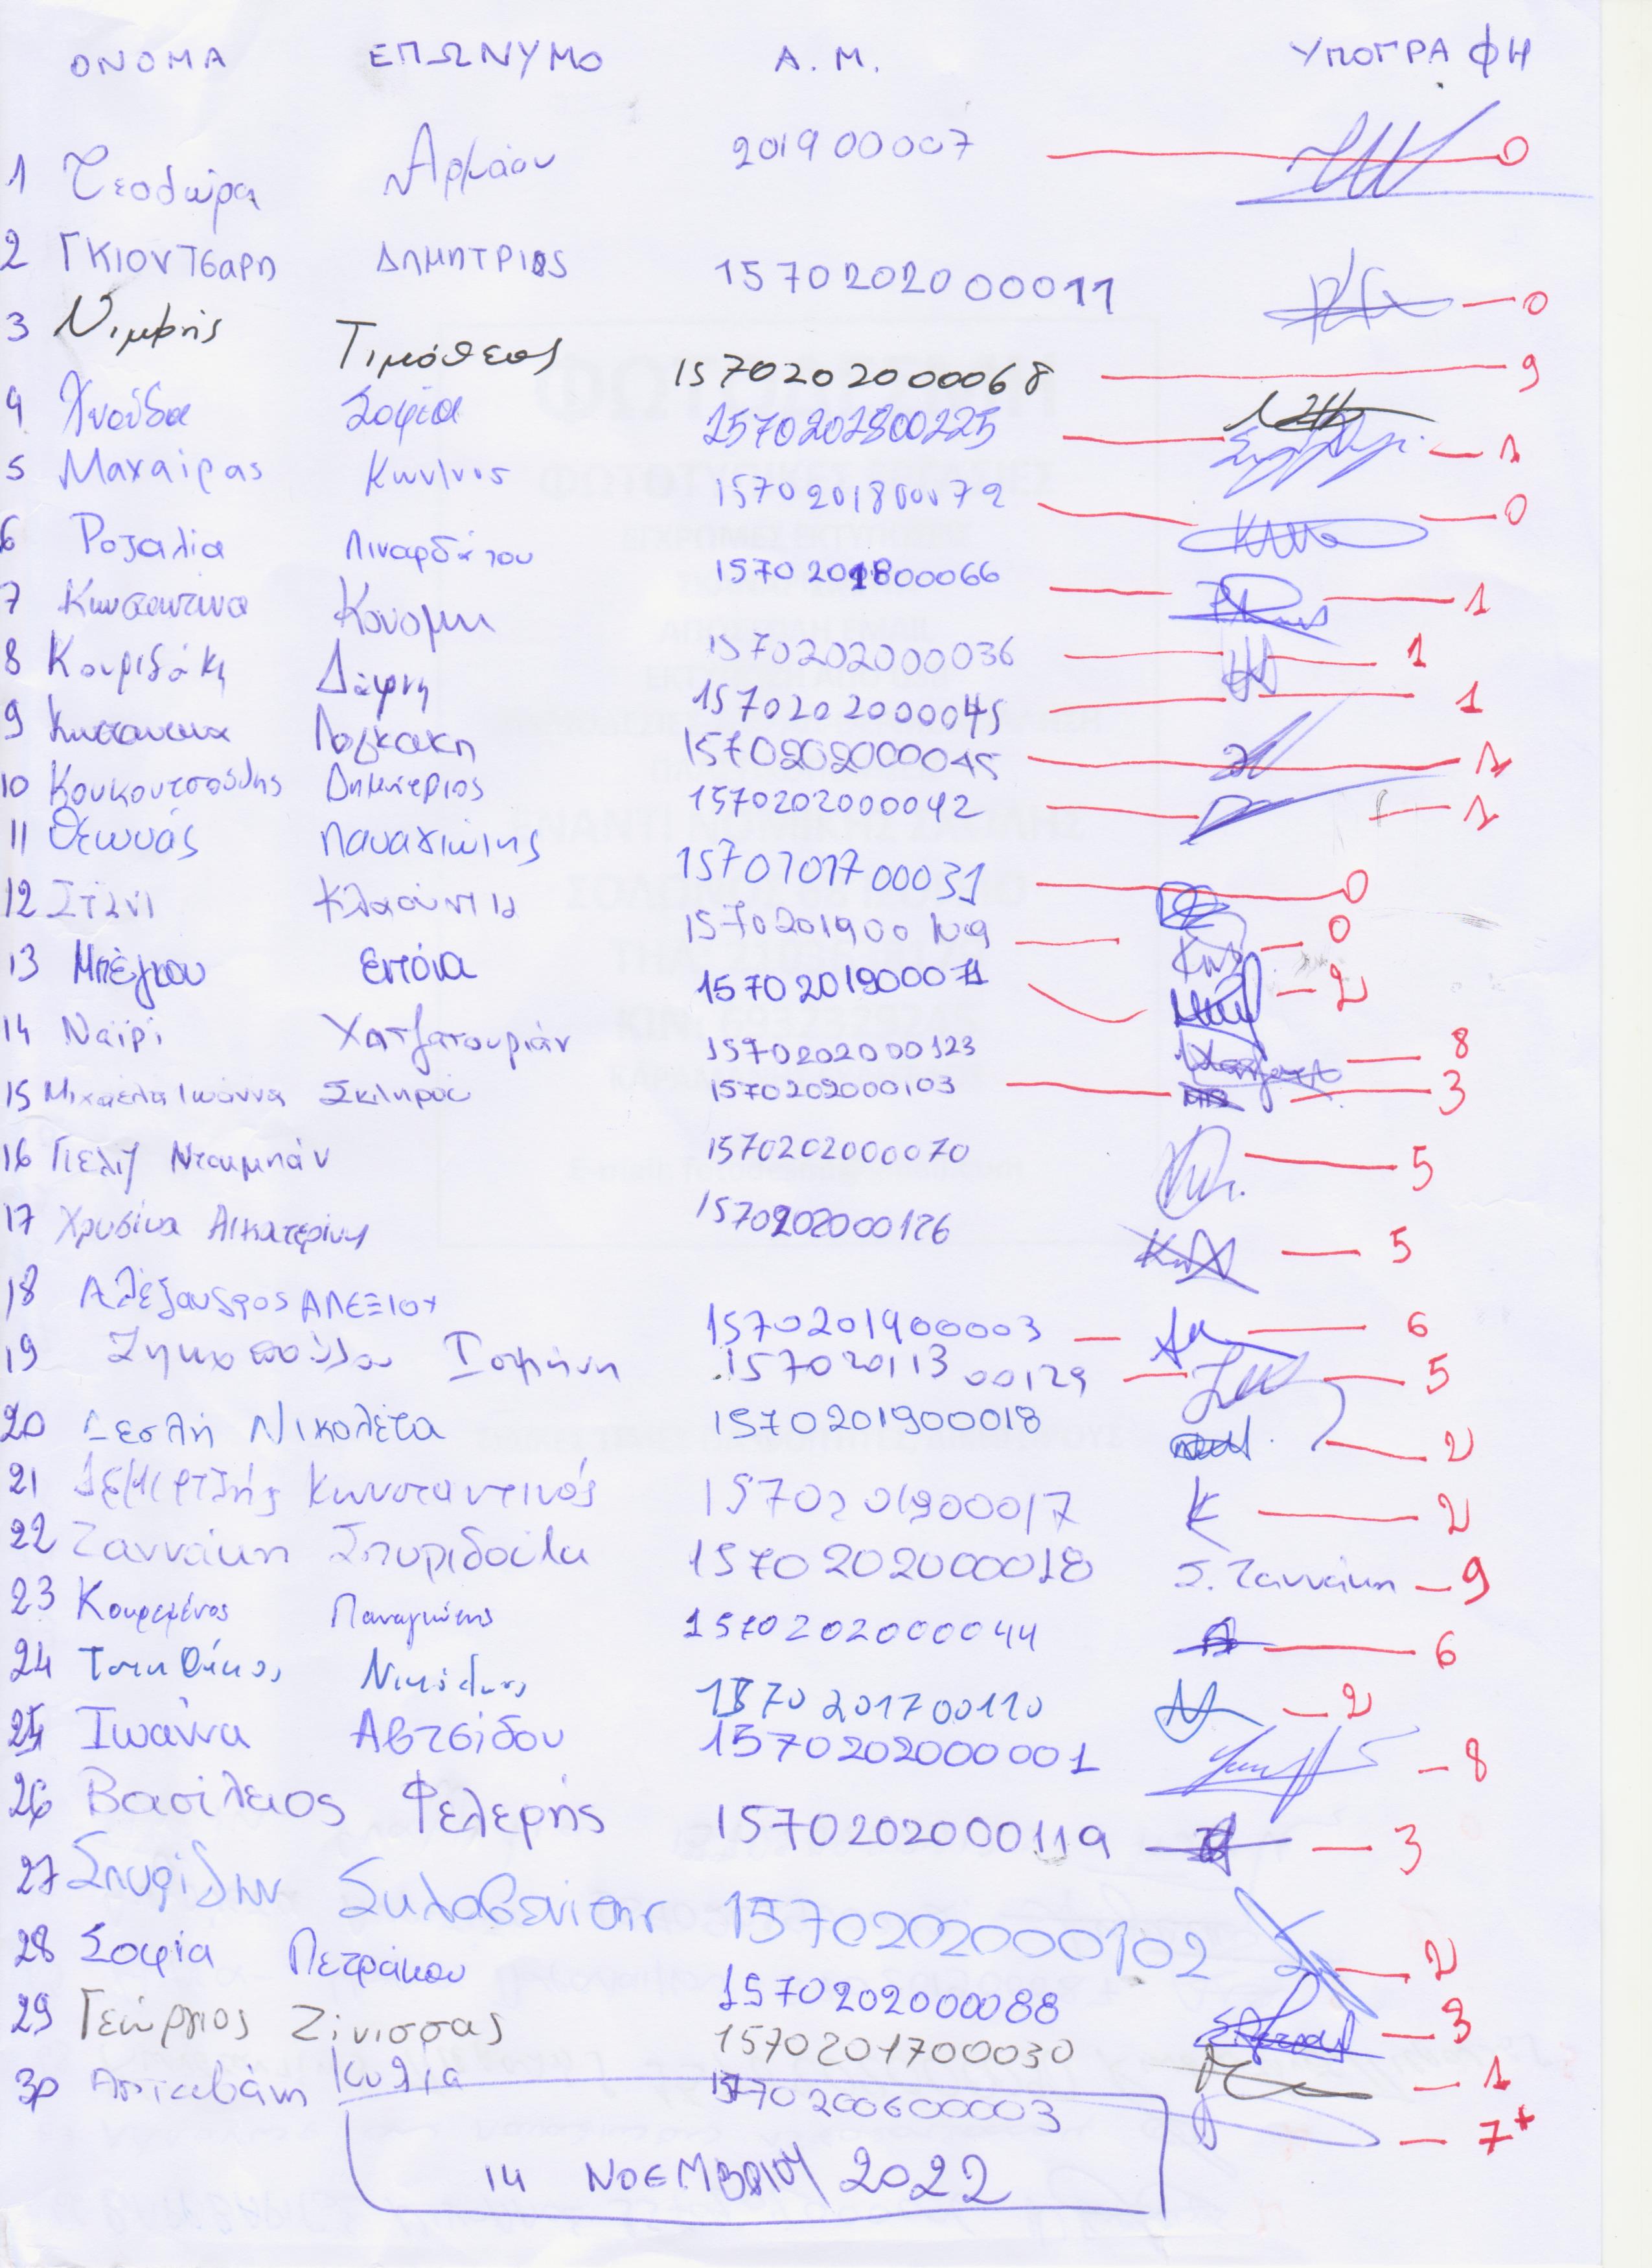 ΟΝΟΜΑ ΕΠΩΝΥΜΟ Α.Μ. ΥΠΟΓΡΑΦΗ
1 Θεοδώρα 201900007 0
2 ΓΚΙΟΝΤΣΑΡΗ ΔΗΜΗΤΡΙΟΣ 1570202000011 0
3 Νιμφής Τιμόθεος 1570202000068 9
4 Χνούδα Σοφία 1570201800225 1
5 Μαχαίρας Κων/νος 1570201800079 0
6 Ροζαλία Λιναρδάτου 1570201800066 1
7 Κωνσταντίνα Κονόμη 1570202000036 1
8 Κουριδάκη Δάφνη 1570202000045 1
9 Κωνσταντίνα Λογκάκη 1570202000045 1
10 Κουκουτσούλης Δημήτριος 1570202000042 1
11 Θεωνάς Παναγιώτης 1570201700031 0
12 Στάνι Κλαούντια 1570201900109 0
13 Μπέγκου Εντόνα 1570201900071 2
14 Ναϊρί Χατζατουριάν 1570202000123 8
15 Μιχαέλα Ιωάννα Σκληρού 1570202000103 3
16 Γιελίζ Ντουμπάν 1570202000070 5
17 Χρυσίνα Αικατερίνη 1570202000126 5
18 Αλέξανδρος ΑΛΕΞΙΟΥ 1570201900003 6
19 Ζηκοπούλου Ιοσηφίνη 00129 5
20 Δεσλή Νικολέτα 1570201900018 2
21 Δεμιρτζής Κωνσταντινός 1570201900017 Κ 2
22 Ζαννάκη Σπυριδούλα 1570202000018 Σ. Ζαννάκη 9
23 Κουρεμένος Παναγιώτης 1570202000044 6
24 Νικόλαος 1570201700110 2
25 Ιωάννα Αβτσίδου 1570202000001 8
26 Βασίλειος Φελερής 1570202000119 3
27 Σπυρίδων Σκλαβενίτης 1570202000102 2
28 Σοφία Πετράκου 1570202000088 3
29 Γεώργιος Ζίνισσας 1570201700030 1
30 Κυλία 1570200600003 7+
14 ΝΟΕΜΒΡΙΟΥ 2022